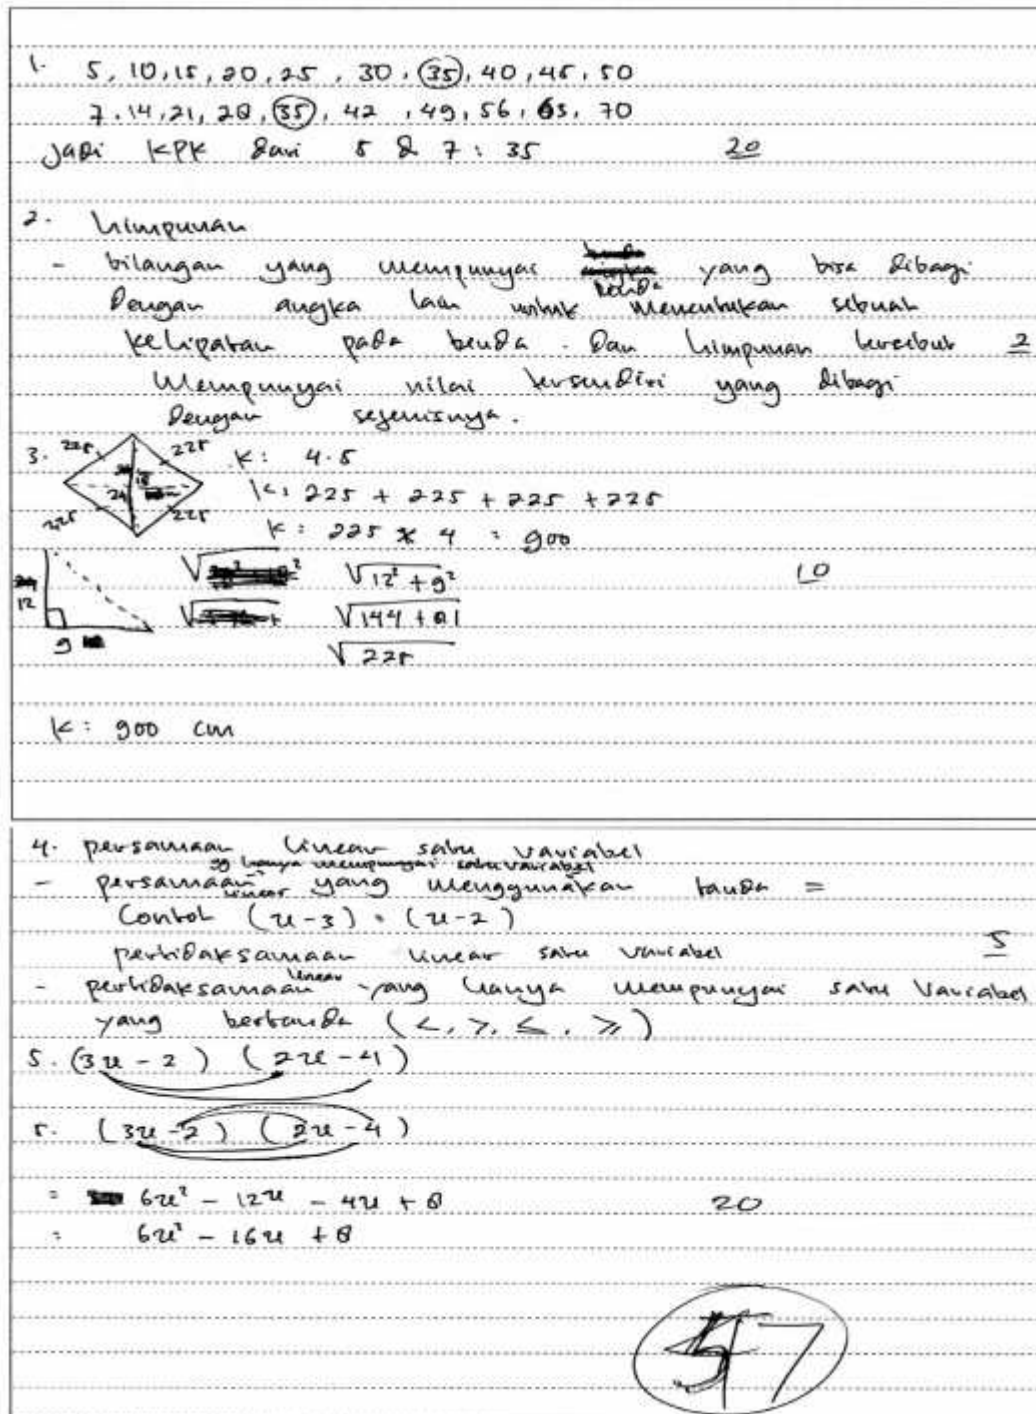 1. 5, 10, 15, 20, 25, 30, 35, 40, 45, 50
7, 14, 21, 28, 35, 42, 49, 56, 63, 70
Jadi KPK dari 5 & 7 : 35 20
2. himpunan
- bilangan yang mempunyai benda yang bisa dibagi
dengan angka lain untuk menentukan sebuah
kelipatan pada benda. dan himpunan tersebut 2
mempunyai nilai tersendiri yang dibagi
dengan sejenisnya.
3. 225 225 K : 4.5
24 18 K : 225 + 225 + 225 + 225
225 225 K : 225 x 4 = 900
√12² + 9² 10
12 √144 + 81
9 √225
K = 900 cm
4. persamaan linear satu variabel
yg hanya mempunyai satu variabel
- persamaan linear yang menggunakan tanda =
Contoh (x-3) = (x-2)
pertidaksamaan linear satu variabel 5
- pertidaksamaan linear yang hanya mempunyai satu variabel
yang bertanda (<, >, ≤, ≥)
5. (3x - 2) (2x - 4)
5. (3x - 2) (2x - 4)
= 6x² - 12x - 4x + 8 20
= 6x² - 16x + 8
57